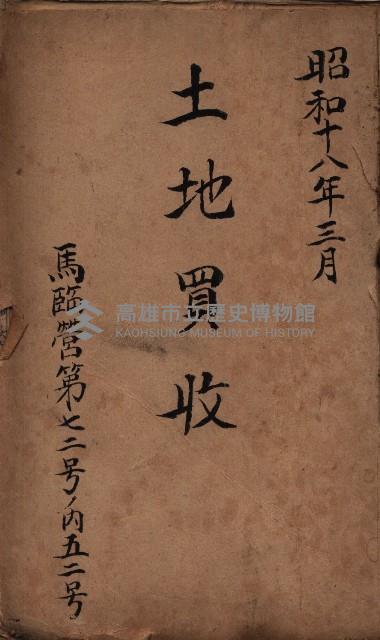 昭和十八年三月
土地買收
馬臨營第七二号ノ内五二号
高雄市立歷史博物館
KAOHSIUNG MUSEUM OF HISTORY